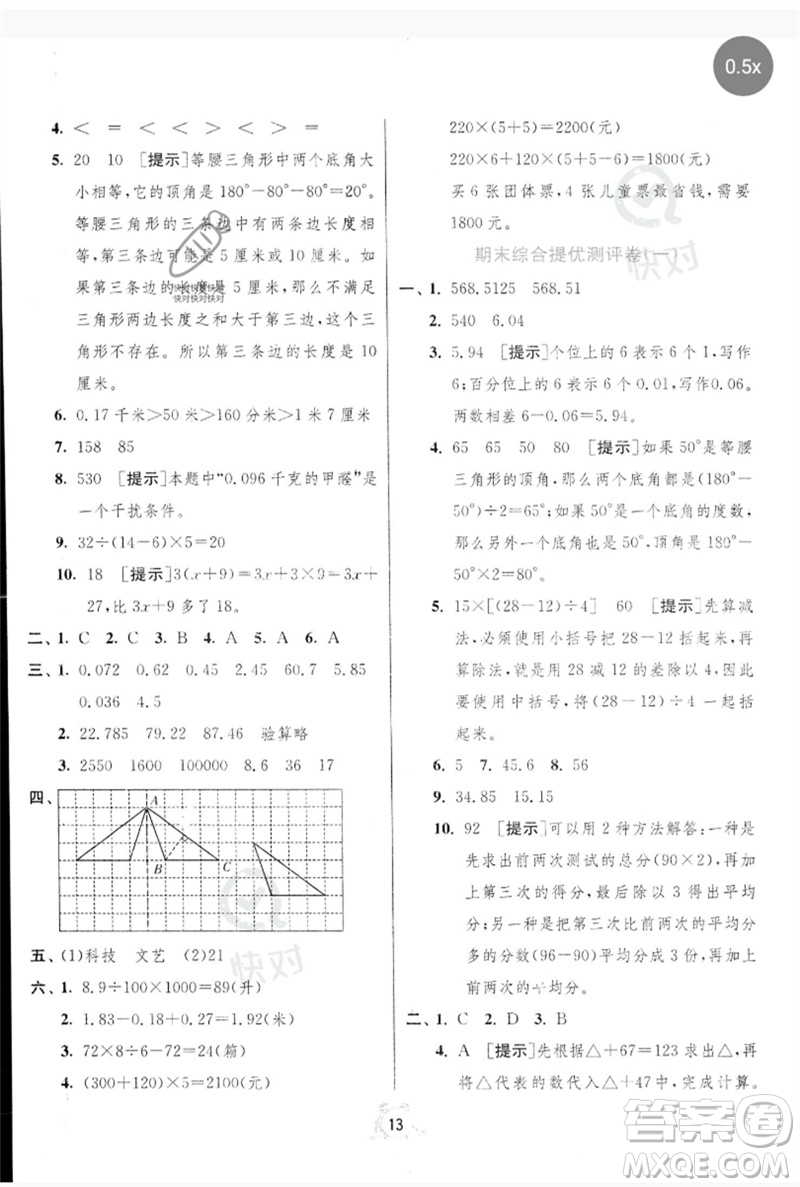 0.5x
4. ＜ ＝ ＜ ＜ ＞ ＞ ＞ ＝
5. 20 10 [提示]等腰三角形中两个底角大
小相等，它的顶角是180°－80°－80°＝20°。
等腰三角形的三条边中有两条边长度相
等，第三条边可能是5厘米或10厘米。如
果第三条边的长度是5厘米，那么不满足
三角形两边长度之和大于第三边，这样的三
角形不存在。所以第三条边的长度是10
厘米。
6. 0.17千米＞50米＞160分米＞1米7分米
7. 158 85
8. 530 [提示]本题中“0.096千克的甲醛”是
一个干扰条件。
9. 32÷(14－6)×5＝20
10. 18 [提示]3(x＋9)＝3x＋3×9＝3x＋
27，比3x＋9多了18。
二、1. C 2. C 3. B 4. A 5. A 6. A
三、1. 0.072 0.62 0.45 2.45 60.7 5.85
0.036 4.5
2. 22.785 79.22 87.46 验算略
3. 2550 1600 100000 8.6 36 17
四、
A
B
C
五、(1)科技 文艺 (2)21
六、1. 8.9÷100×1000＝89(升)
2. 1.83－0.18＋0.27＝1.92(米)
3. 72×8÷(8－6÷2)... 
4. (300＋120)×5＝2100(元)
220×(5＋5)＝2200(元)
220×6＋120×(5＋5－6)＝1800(元)
买6张团体票，4张儿童票最省钱，需要
1800元。
期末综合提优测评卷(一)
一、1. 568.5125 568.51
2. 540 6.04
3. 5.94 [提示]个位上的6表示6个1，写作
6；百分位上的6表示6个0.01，写作0.06。
两数相差6－0.06＝5.94。
4. 65 65 50 80 [提示]如果50°是等腰
三角形的顶角，那么两个底角都是(180°－
50°)÷2＝65°；如果50°是一个底角的度数，
那么另外一个底角也是50°，顶角是180°－
50°×2＝80°。
5. 15×[(28－12)÷4] 60 [提示]先算减
法，必须使用小括号把28－12括起来；再
算除法，就是用28减12的差除以4，只需
要使用中括号，将(28－12)÷4括
起来。
6. 5 7. 45 8. 56
9. 34.85 15
10. 92 [提示]可以用2种方法解答：一种是
先求出前两次测试的总分(90×2)，再加
上第三次的得分，最后除以3得出平均
分；另一种是把第三次比前两次的平均分
多的分数(96－90)平均分成3份，再加上
前两次的平均分。
二、1. C 2. D 3. B
4. A [提示]先根据△＋67＝123求出△，再
将△代表的数代入△＋44，完成计算。
13
快对
快对
快对快对快对
快对快对快对
答案圈
MXQE.COM